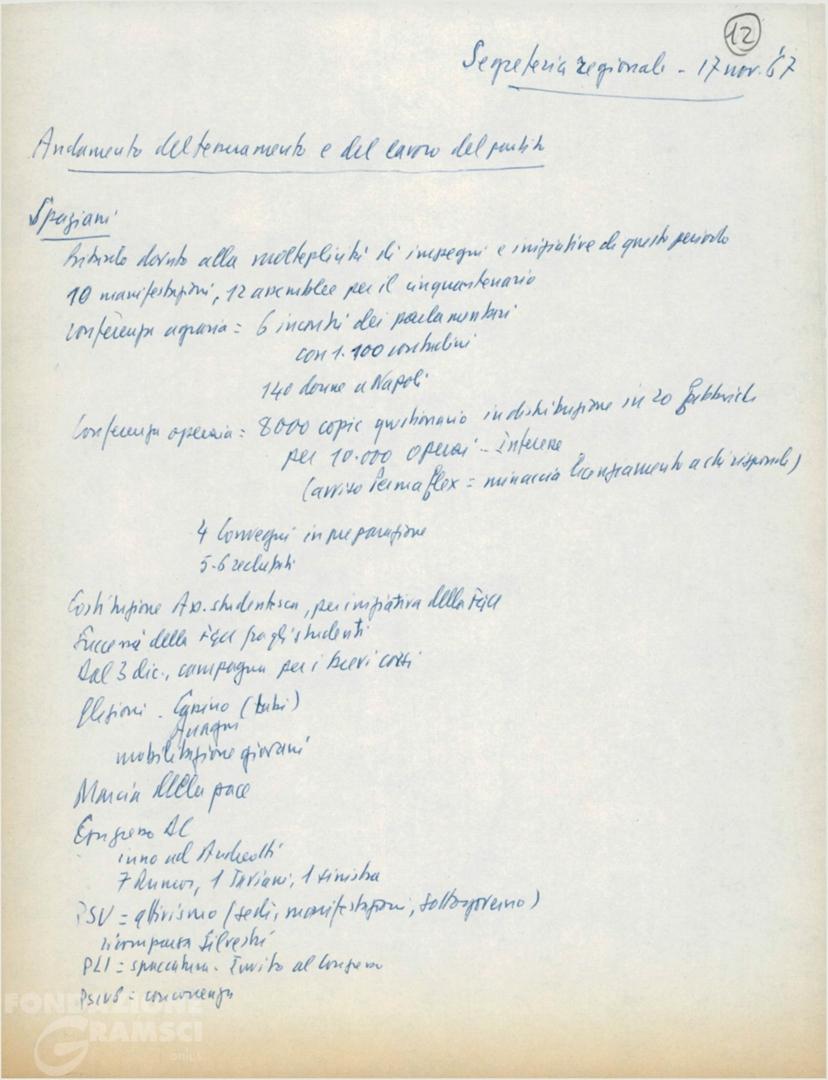 12
Segreteria regionale - 17 nov. 67
Andamento del tesseramento e del lavoro del partito
Spaziani
Ritardo dovuto alla molteplicità di impegni e iniziative di questo periodo
10 manifestazioni, 12 assemblee per il cinquantenario
Conferenza agraria = 6 incontri dei parlamentari
con 1.100 contadini
140 donne a Napoli
Conferenza operaia = 8000 copie questionario in distribuzione in 20 fabbriche
per 10.000 operai - Interesse
(avviso Permaflex = minaccia licenziamento a chi risponde)
4 Convegni in preparazione
5-6 reclutati
Costituzione Ass. studentesca, per iniziativa della Fgci
Successi della Fgci fra gli studenti
Dal 3 dic., campagna per i brevi corsi
Elezioni - Cassino (tubi)
Anagni
mobilitazione giovani
Marcia della pace
Congresso DC
inno ad Andreotti
7 Rumor, 1 Taviani, 1 sinistra
PSU = attivismo (sedi, manifestazioni, sottogoverno)
ricomparsa Silvestri
PLI = spaccatura - Invito al Congresso
Psiup = concorrenza
FONDAZIONE
GRAMSCI
onlus